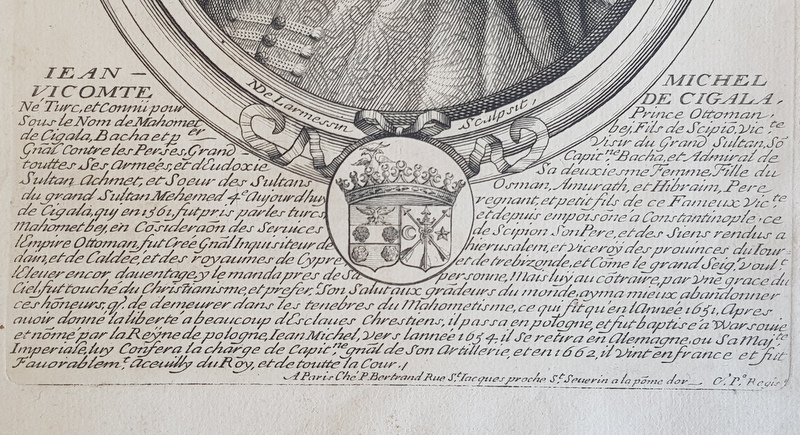 IEAN – MICHEL
VICOMTE DE CIGALA.
Né Turc, et Connü pour Prince Ottoman,
Sous le Nom de Mahomet bej, Fils de Scipio, Vic.te
de Cigala, Bacha et p.er Visir du Grand Sultan, Sõ
Gñal Contre les Perses, Grand Capit.ne Bacha, et Admiral de
touttes Ses Armeés, et d'Eudoxie Sa deuxiesme Femme, Fille du
Sultan Achmet, et Soeur des Sultans Osman, Amurath, et Hibraim, Pere
du grand Sultan Mehemed 4.e aujourdhuy regnant, et petit fils de ce Fameux Vic.te
de Cigala, quy en 1561, fut pris par les turcs, et depuis empoisoné a Constantinople, ce
Mahomet bej, en Cõsideraõn des Seruices de Scipion Son Pere, et des Siens rendus a
l'Empire Ottoman, fut Creé Gñal Inquisiteur de hierusalem, et viceroy des prouinces du Iour
dain, et de Caldeé, et des royaumes de Cypre et de trebizonde, et Cõme le grand Seig.r voul.t
l'Eleuer encor dauentage, y le manda pres de Sa personne, Mais luy au cõtraire, par vne grace du
Ciel, fut touché du Christianisme, et prefer.t Son Salut aux grãdeurs du monde, ayma mieux abandonner
ces hõneurs, q.e de demeurer dans les tenebres du Mahometisme, ce qui fit qu'en l'Anneé 1651, Apres
auoir donné la liberté a beaucoup d'Esclaues Chrestiens, il passa en pologne, et fut baptisé a Warsouie
et nõmé par la Reÿne de pologne, Iean Michel, Vers l'anneé 1654, il se retira en Alemagne, ou Sa Maj.té
Imperiale, luy Confera la charge de Capit.ne gñal de Son Artillerie, et en 1662, il vint en france et fut
Fauorablem.t Aceuilly du Roy, et de toutte la Cour.
N. De Larmessin Sculpsit,
A Paris Ché P. Bertrand Rue S.t Iacques proche S.t Seuerin a la põme dor C. P. Regis